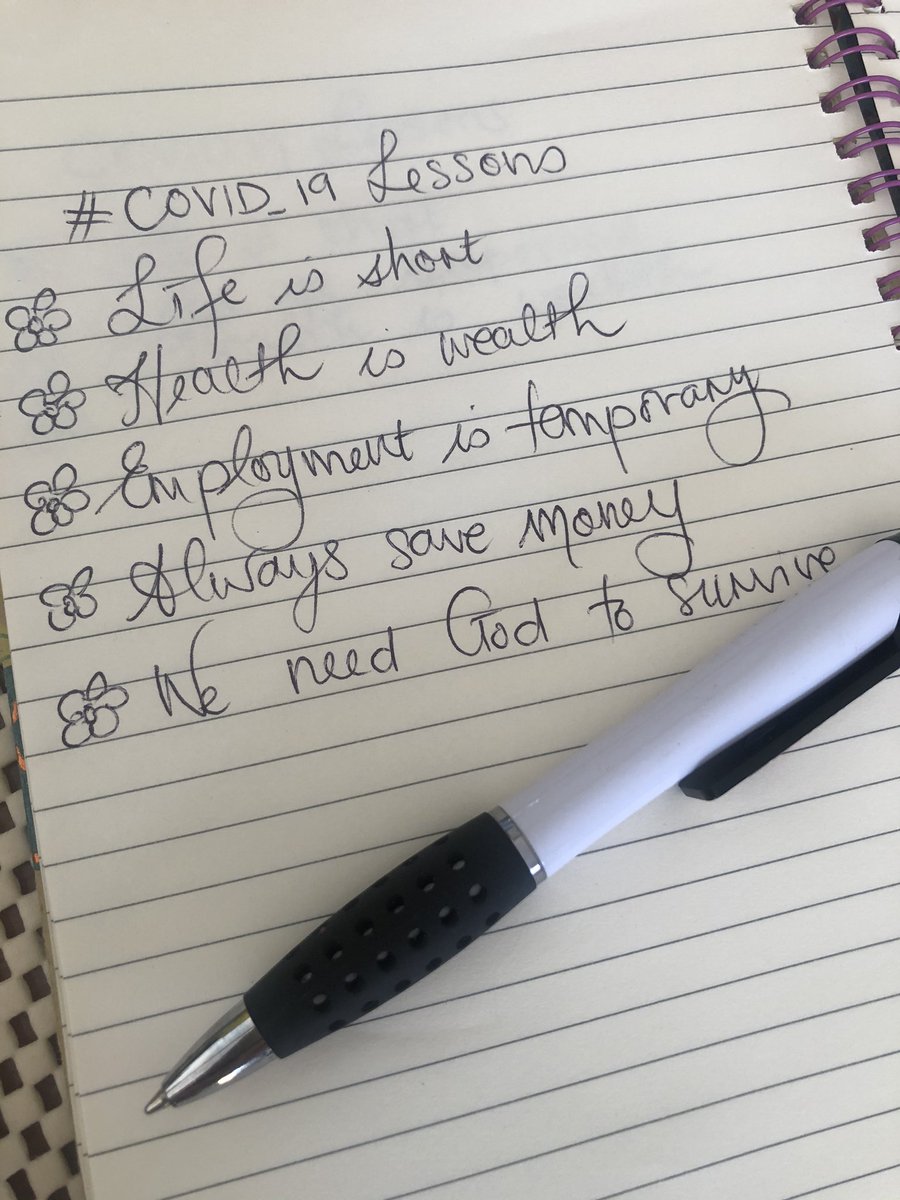 #COVID_19 Lessons
Life is short
Health is wealth
Employment is temporary
Always save money
We need God to survive